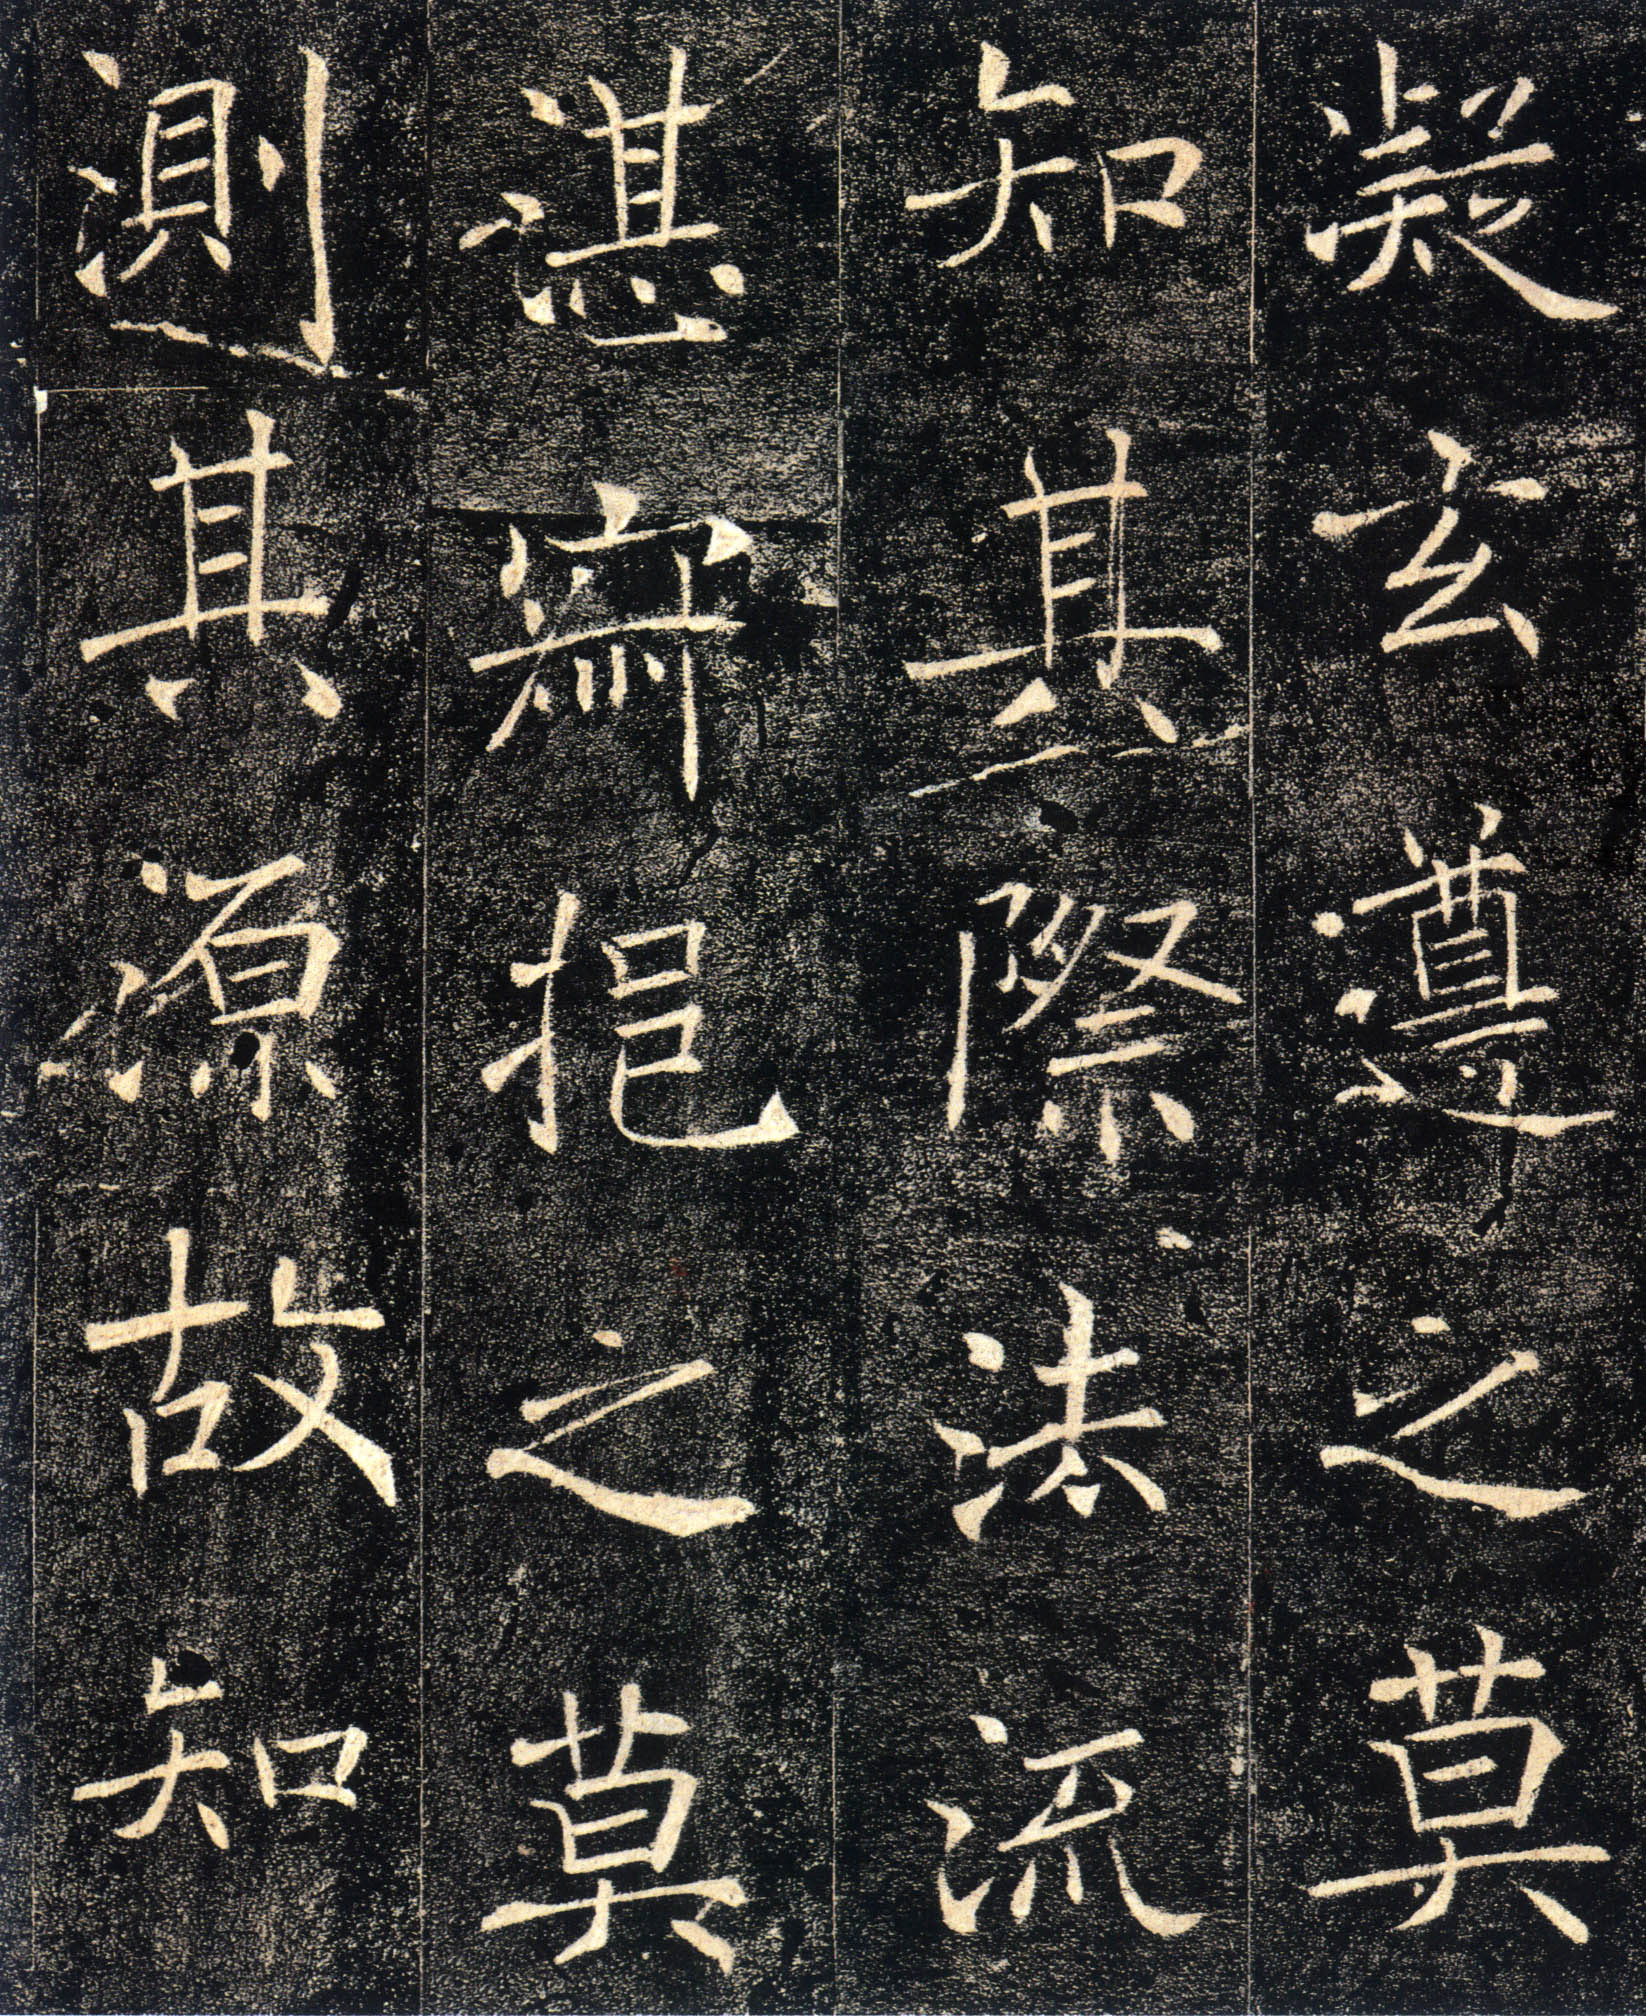 凝玄遵之莫
知其際法流
湛寂挹之莫
測其源故知